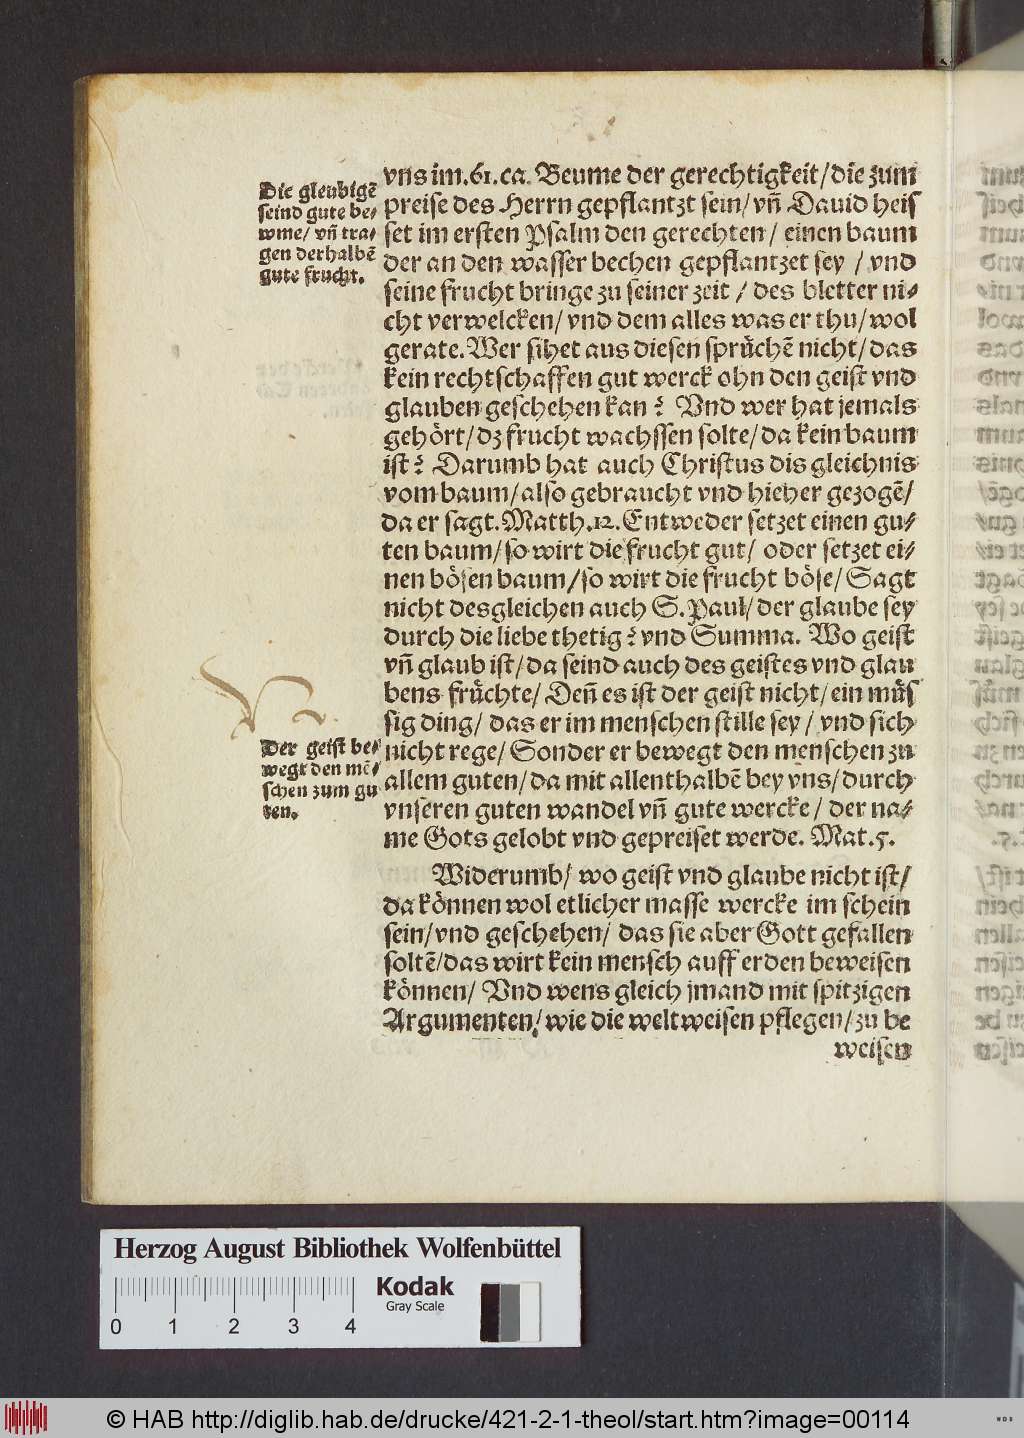 vns im.61.ca. Beume der gerechtigkeit/die zum
preise des Herrn gepflantzt sein/vñ Dauid heis
set im ersten Psalm den gerechten/ einen baum
der an den wasser bechen gepflantzet sey /vnd
seine frucht bringe zu seiner zeit / des bletter ni-
cht verwelcken/vnd dem alles was er thu/wol
gerate.Wer sihet aus diesen sprüchē nicht/das
kein rechtschaffen gut werck ohn den geist vnd
glauben geschehen kan? Vnd wer hat jemals
gehört/dz frucht wachssen solte/da kein baum
ist? Darumb hat auch Christus dis gleichnis
vom baum/also gebraucht vnd hieher gezogē/
da er sagt.Matth.12.Entweder setzet einen gu-
ten baum/so wirt die frucht gut/ oder setzet ei-
nen bösen baum/so wirt die frucht böse/Sagt
nicht desgleichen auch S.Paul/der glaube sey
durch die liebe thetig? vnd Summa. Wo geist
vñ glaub ist/da seind auch des geistes vnd glau
bens früchte/ Deñ es ist der geist nicht/ein müs
sig ding/ das er im menschen stille sey/ vnd sich
nicht rege/Sonder er bewegt den menschen zu
allem guten/da mit allenthalbē bey vns/durch
vnseren guten wandel vñ gute wercke/ der na-
me Gots gelobt vnd gepreiset werde. Mat.5.
Widerumb/ wo geist vnd glaube nicht ist/
da können wol etlicher masse wercke im schein
sein/vnd geschehen/ das sie aber Gott gefallen
soltē/das wirt kein mensch auff erden beweisen
können/ Vnd wens gleich jmand mit spitzigen
Argumenten/wie die weltweisen pflegen/zu be
weisen
Die gleubigē
seind gute be-
wme/ vñ tra-
gen derhalbē
gute frucht.
Der geist be-
wegt den mē-
schen zum gu
ten.
Herzog August Bibliothek Wolfenbüttel
Kodak
Gray Scale
0 1 2 3 4
© HAB http://diglib.hab.de/drucke/421-2-1-theol/start.htm?image=00114